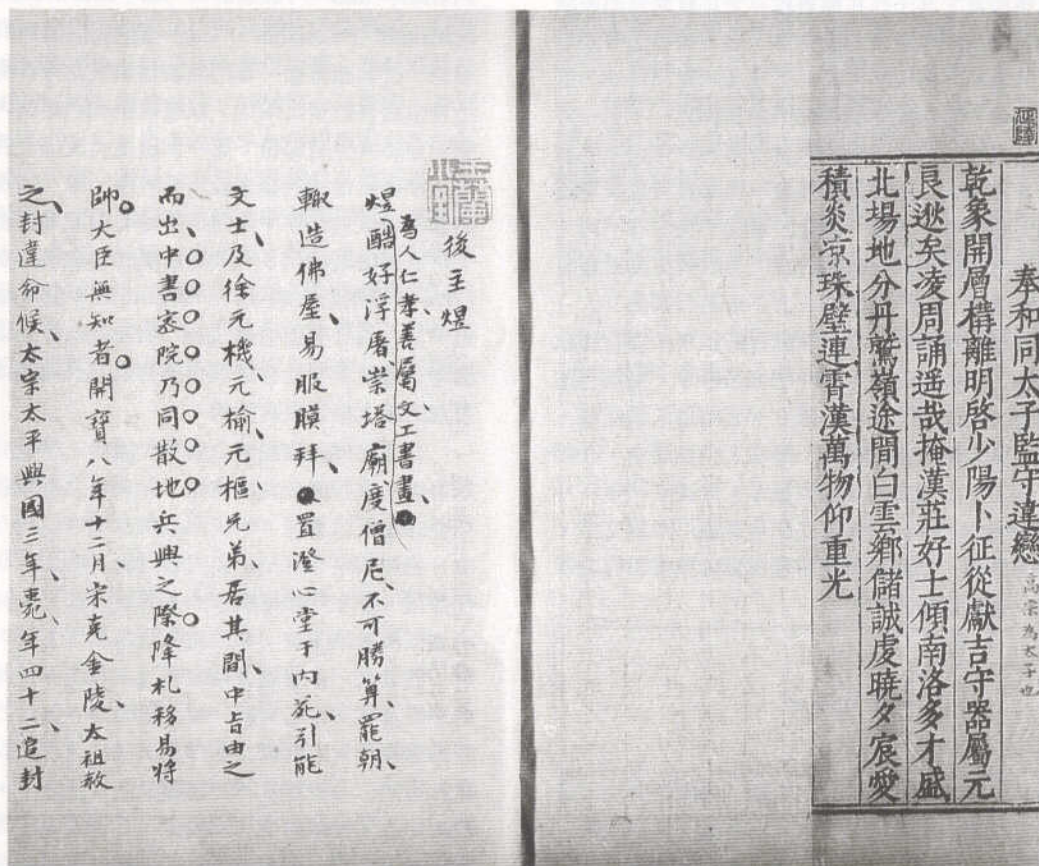 奉和同太子監守違戀 高宗為太子也
乾象開層構離明啓少陽卜征從獻吉守器屬元
良逖矣凌周誦遥哉掩漢莊好士傾南洛多才盛
北場地分丹鷲嶺途間白雲鄉儲誠虔曉夕宸愛
積炎京珠璧連霄漢萬物仰重光
後主煜
為人仁孝善屬文工書畫
煜酷好浮屠崇塔廟度僧尼不可勝算罷朝
輙造佛屋易服膜拜置澄心堂于内苑引能
文士及徐元機元榆元樞兄弟居其間中旨由之
而出中書密院乃同散地兵興之際降札移易將
帥大臣無知者開寶八年十二月宋克金陵太祖赦
之封違命侯太宗太平興國三年薨年四十二追封